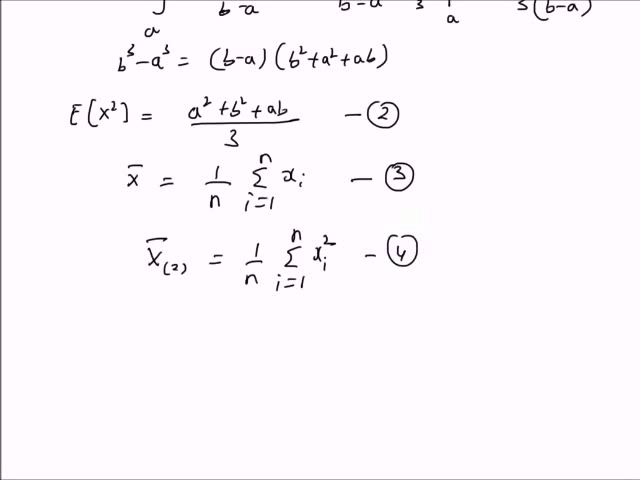 a b-a b-a 3 a 3(b-a)
b³-a³ = (b-a)(b²+a²+ab)
E[X²] = a²+b²+ab / 3 — ②
x̄ = 1/n Σ_{i=1}^{n} x_i — ③
X̄_(2) = 1/n Σ_{i=1}^{n} x_i² — ④